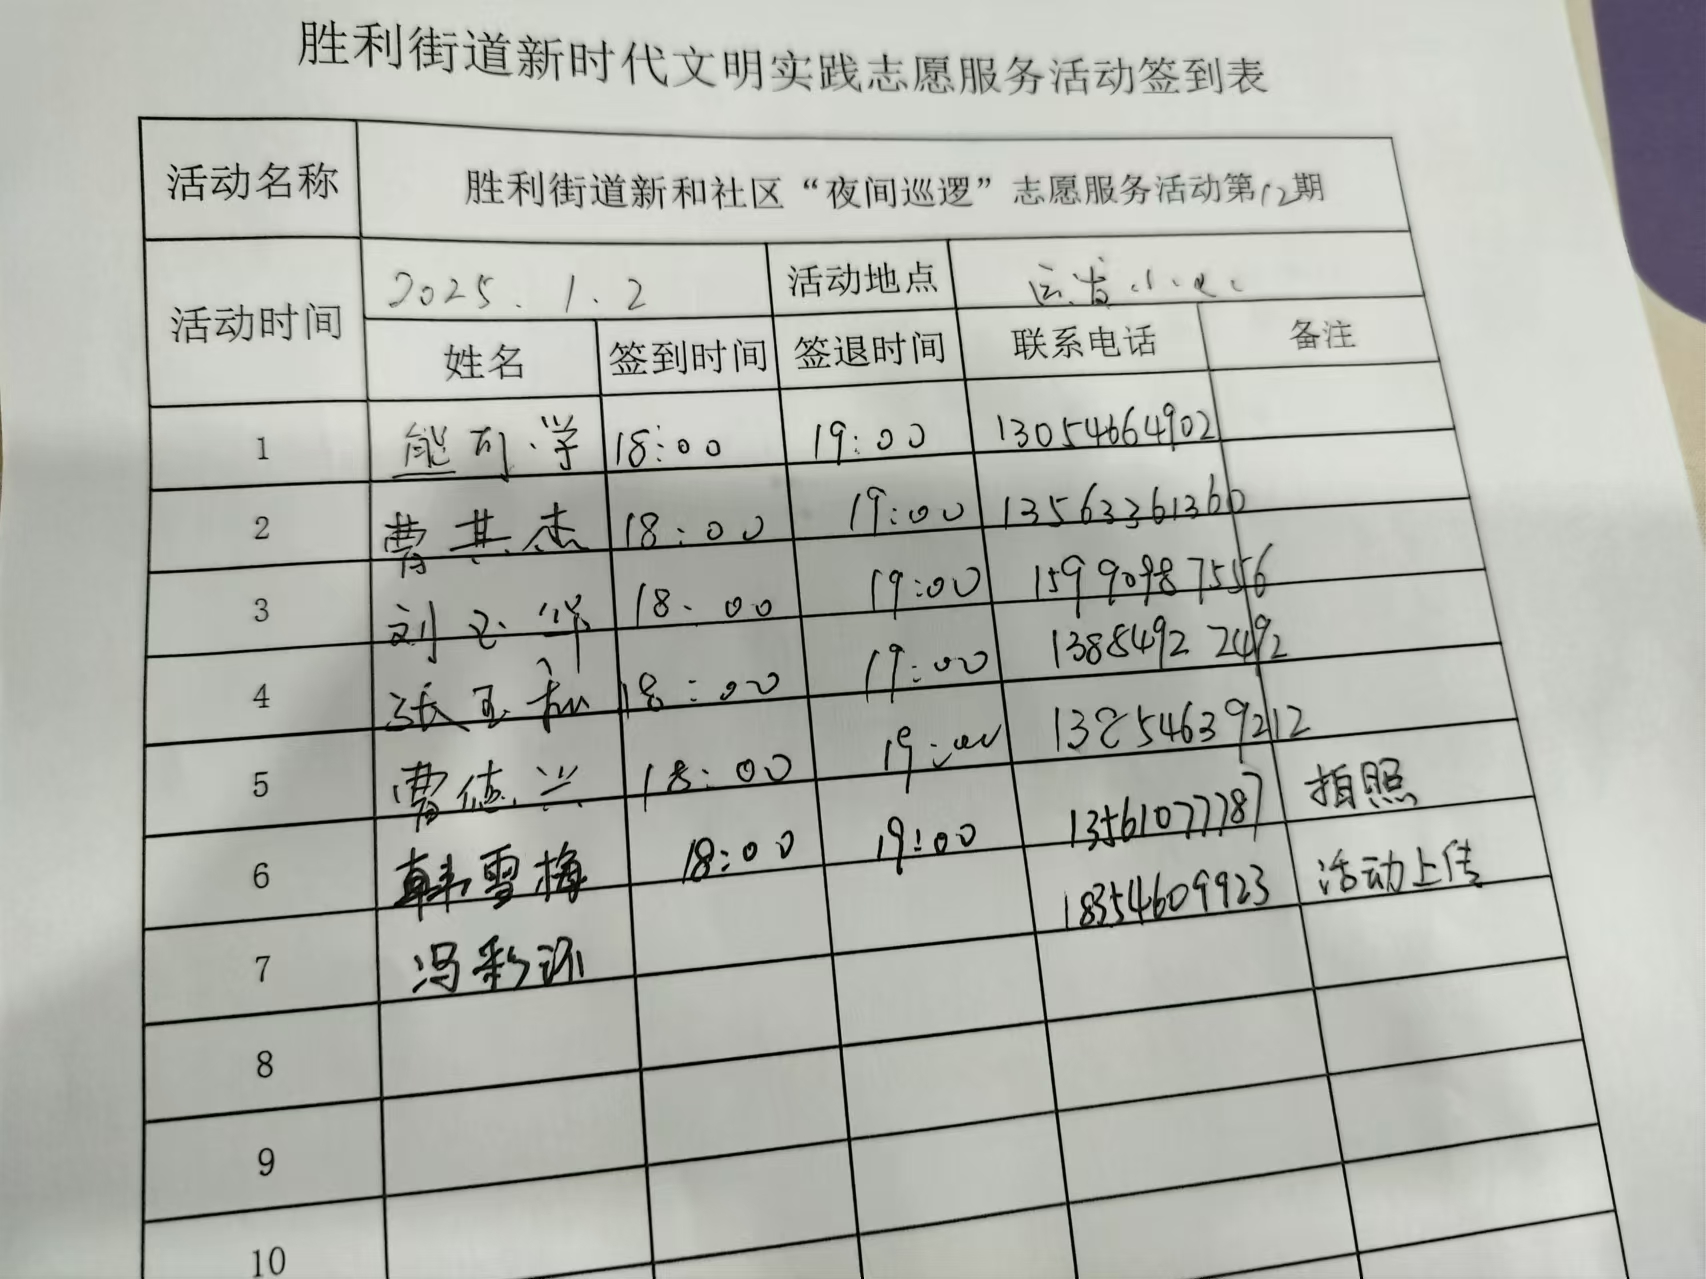 胜利街道新时代文明实践志愿服务活动签到表
活动名称 胜利街道新和社区“夜间巡逻”志愿服务活动第12期
活动时间 2025.1.2 活动地点
姓名 签到时间 签退时间 联系电话 备注
1 18:00 19:00 13054664902
2 曹其杰 18:00 19:00 13563361360
3 刘玉华 18:00 19:00 15990987556
4 张玉 18:00 19:00 13884922492
5 曹德兴 18:00 19:00 13854639212
6 韩雪梅 18:00 19:00 13561077787 拍照
7 冯彩 18354609923 活动上传
8
9
10